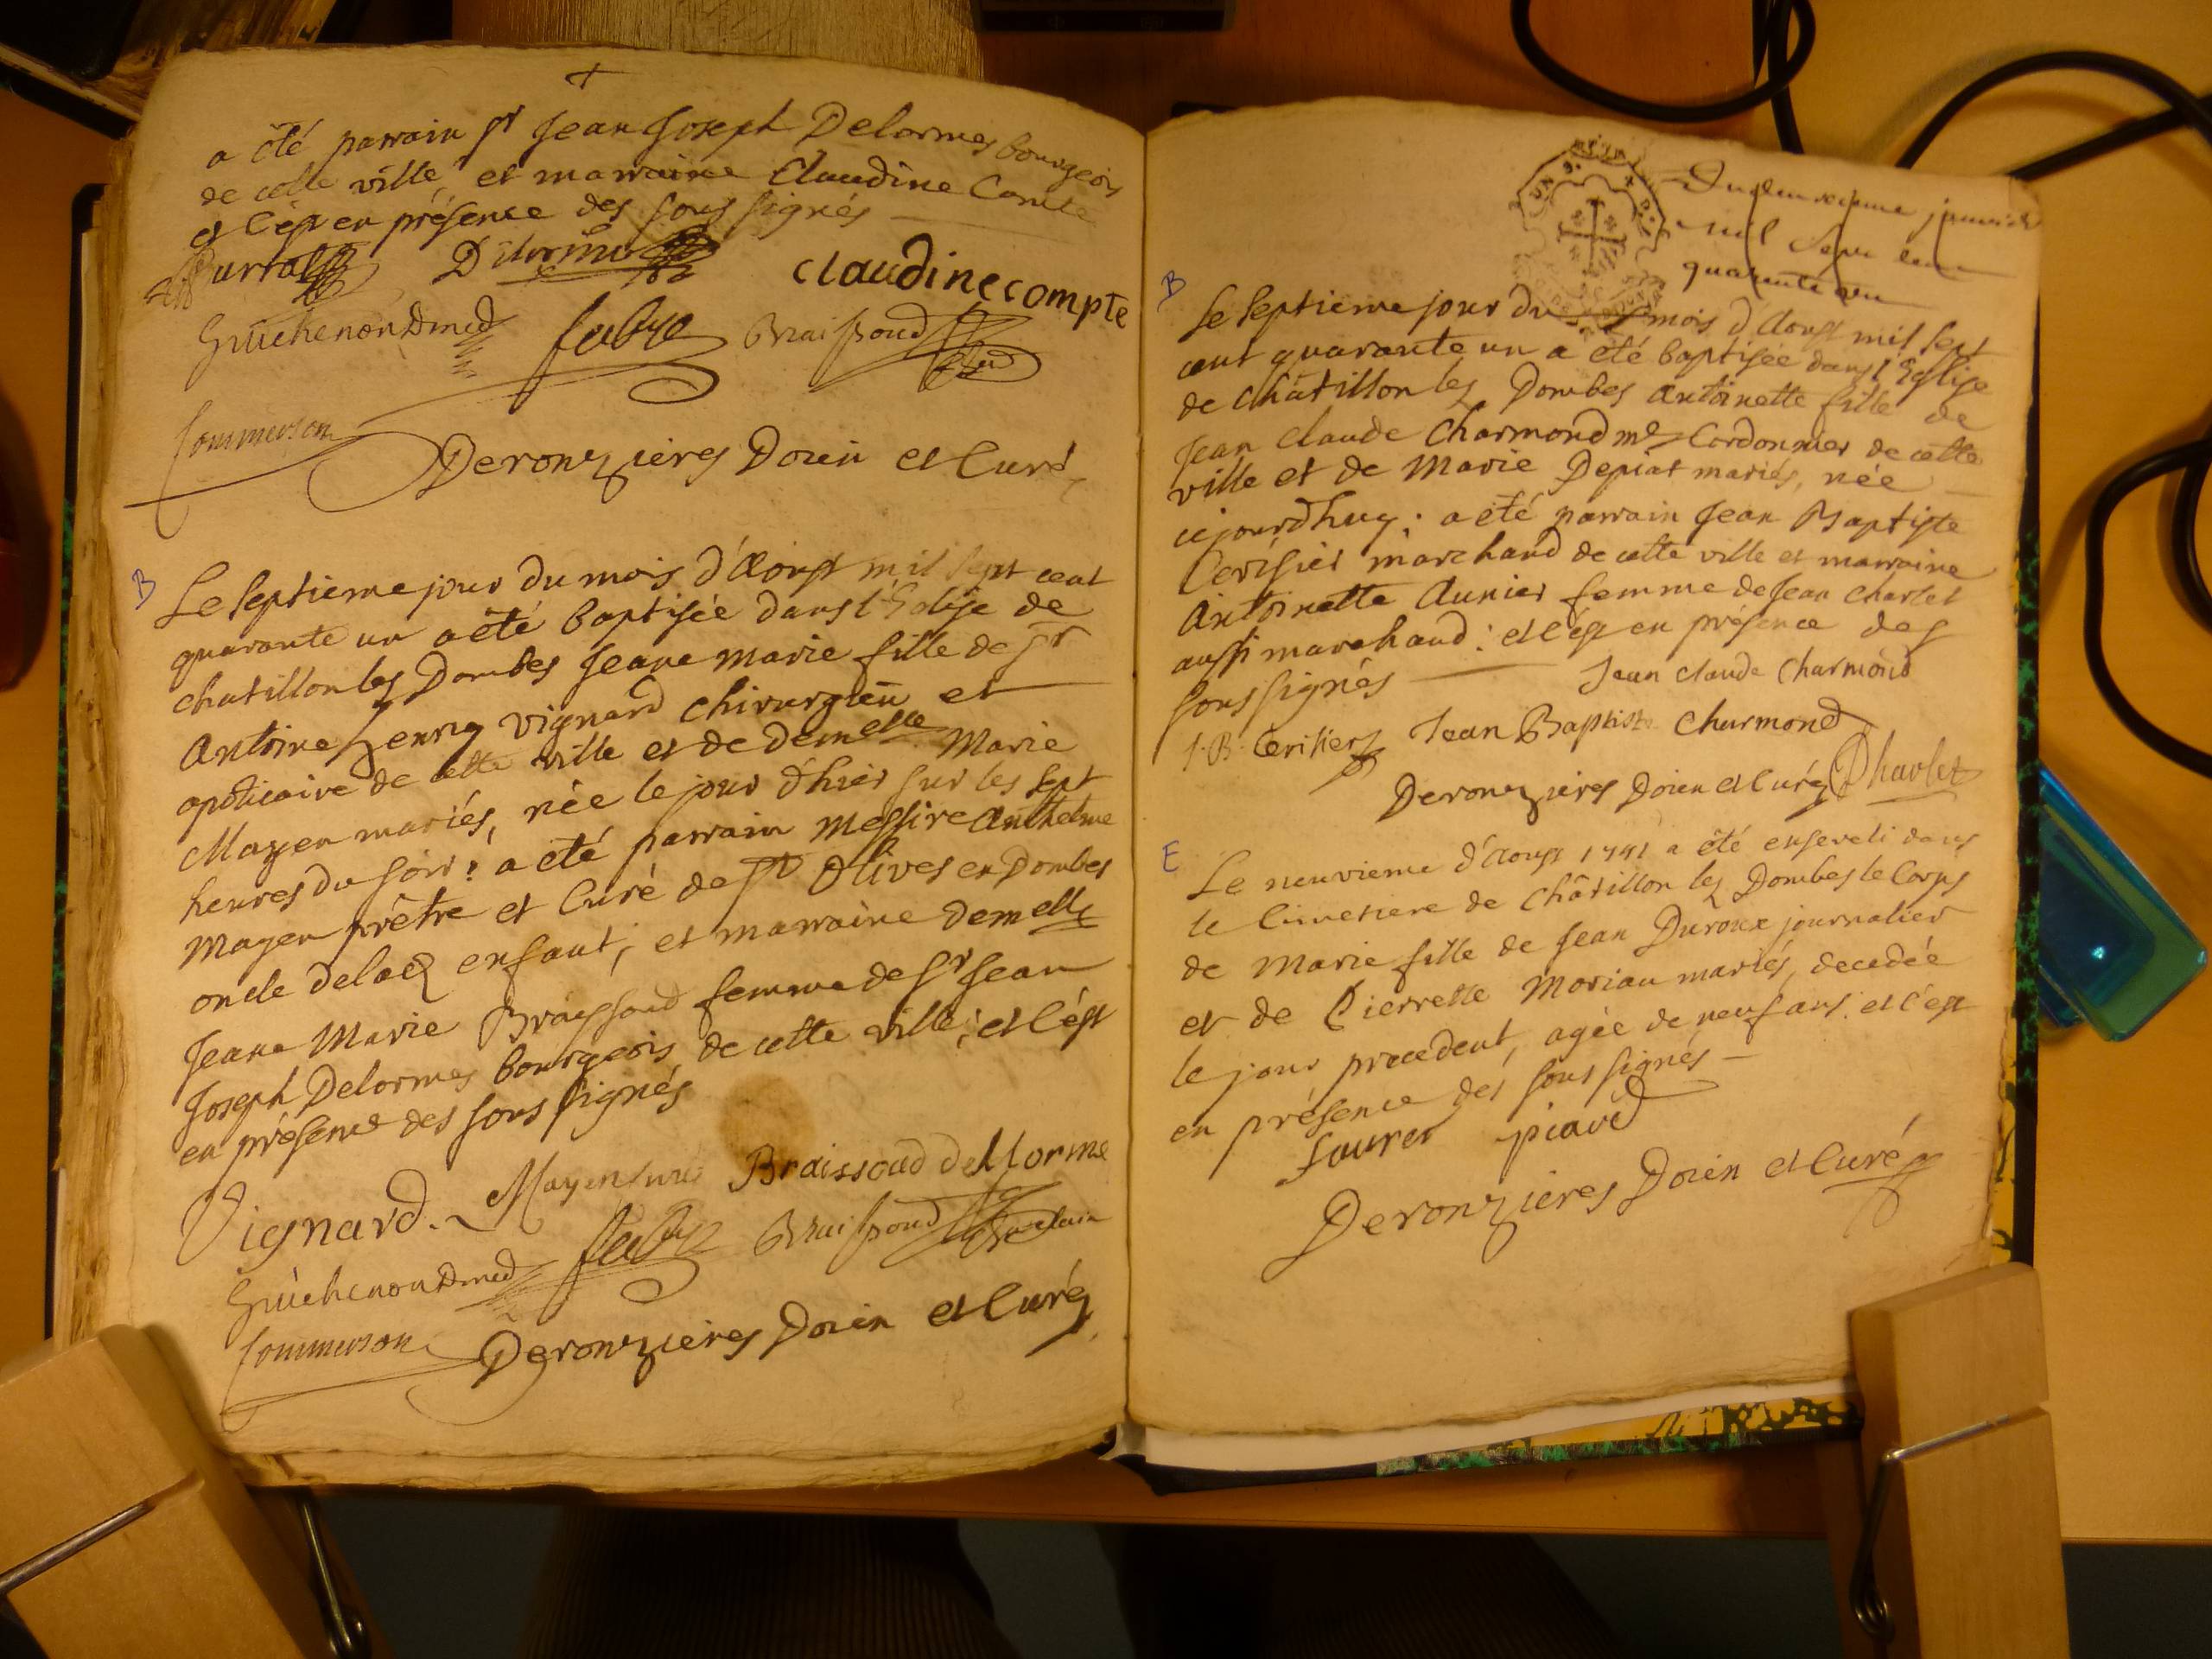 a été parrain sr Jean Joseph Delormes bourgeois
de cette ville, et marraine Claudine Comte
et c'est en présence des soussignés
Delorme claudine compte
Guichenon Dmed Braissoud
Commerson
Deronzieres Doien et Curé
B
Le septieme jour du mois d'Aoust mil sept cent
quarante un a été baptisée dans l'Eglise de
chatillon les Dombes Jeane Marie fille de sr
Antoine henry Vignard chirurgien et
apoticaire de cette ville et de demelle Marie
Mayen mariés, née le jour d'hier sur les sept
heures du soir: a été parrain Messire Anthelme
Mayen prêtre et Curé de St Olives en Dombes
oncle de lad enfant, et marraine demelle
Jeane Marie Braissoud femme de sr Jean
Joseph Delormes bourgeois de cette ville; et c'est
en présence des soussignés
Vignard. Mayen curé Braissoud delorme
Guichenon Dmed Braissoud
Commerson Deronzieres Doien et Curé
Du deuxieme janvier
mil sept cent
quarante un
B
Le septieme jour du mois d'Aoust mil sept
cent quarante un a été baptisée dans l'Eglise
de Châtillon les Dombes Antoinette fille de
Jean Claude Charmond me Cordonnier de cette
ville et de Marie Depiat mariés, née
cejourdhuy: a été parrain Jean Baptiste
Cerisier marchand de cette ville et marraine
Antoinette Aunier femme de Jean Charlet
aussi marchand: et c'est en présence des
soussignés Jean Claude Charmond
J. B. Cerisier Jean Baptiste Charmond
Deronzieres Doien et Curé Charlet
E
Le neuvieme d'Aoust 1741 a été enseveli dans
le Cimetiere de Châtillon les Dombes le Corps
de Marie fille de Jean Duroux journalier
et de Pierrette Moriau mariés, decedée
le jour precedent, agée de neuf ans. et c'est
en présence des soussignés
fourer picard
Deronzieres Doien et Curé